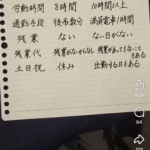 労働時間 8時間 10時間以上
通勤手段 徒歩数分 満員電車1時間
残業 ない ない日がない
残業代 残業がないからない 残業があってもなくこともある
土日祝 休み 出勤する日もある
64